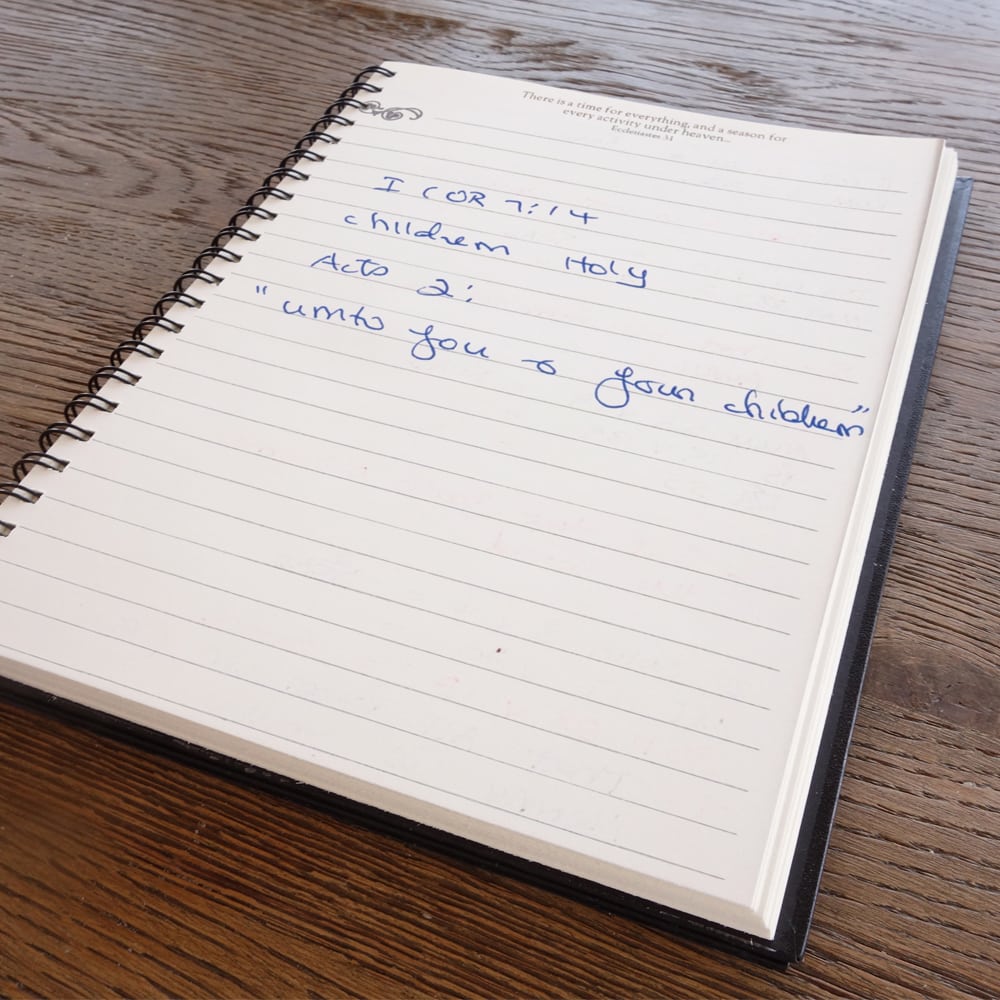 There is a time for everything, and a season for
every activity under heaven...
Ecclesiastes 3:1
I COR 7:14
children Holy
Acts 2:
"unto you & your children"